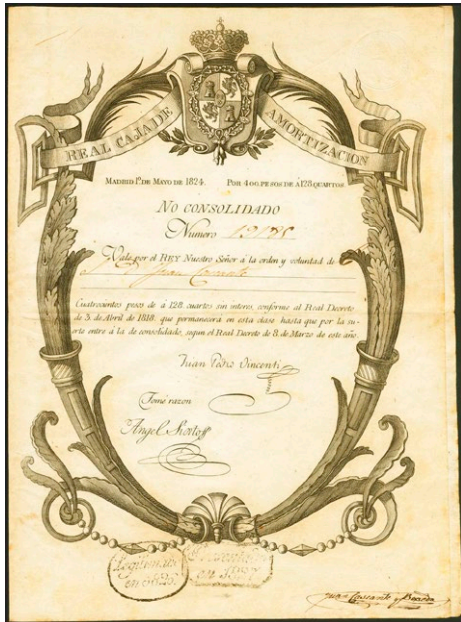 REAL CAJA DE AMORTIZACION
MADRID 1º. DE MAYO DE 1824. POR 400. PESOS DE Á 128. QUARTOS
NO CONSOLIDADO
Numero
Vale por el REY Nuestro Señor á la orden y voluntad de
Juan
Cuatrocientos pesos de á 128 cuartos sin interes, conforme al Real Decreto
de 3. de Abril de 1818. que permanecerá en esta clase hasta que por la su-
erte entre á la de consolidado, segun el Real Decreto de 8. de Marzo de este año.
Juan Pedro Vincenti
Tomé razon
Angel
en 1825.